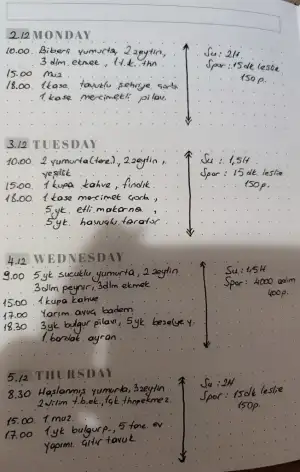 2.12 MONDAY
10.00 Biberli yumurta, 2 zeytin,
3 dlm. ekmek, 1 t.k. thn
15.00 muz
18.00 1 kase tavuklu şehriye çorb
1 kase mercimekli pilav.
Su: 2H
Spor: 15 dk leslie
150 p.
3.12 TUESDAY
10.00 2 yumurta (tere), 2 zeytin,
yeşillik
15.00 1 kupa kahve, fındık
18.00 1 kase mercimek çorb,
5 yk. etli makarna,
5 yk. havuçlu tarator
Su: 1,5H
Spor: 15 dk leslie
150 p.
4.12 WEDNESDAY
9.00 5 yk sucuklu yumurta, 2 zeytin
3 dlm peynir, 3 dlm ekmek
15.00 1 kupa kahve
17.00 Yarım avuç badem
18.30 3 yk bulgur pilavı, 5 yk bezelye y.
1 bardak ayran.
Su: 1,5H
Spor: 4000 adım
400 p.
5.12 THURSDAY
8.30 Haşlanmış yumurta, 3 zeytin
2 dilim t.b.ek,
15.00 1 muz
17.00 1 yk bulgur p., 5 tane ev
yapımı çıtır tavuk
Su: 2H
Spor: 15 dk leslie
150 p.